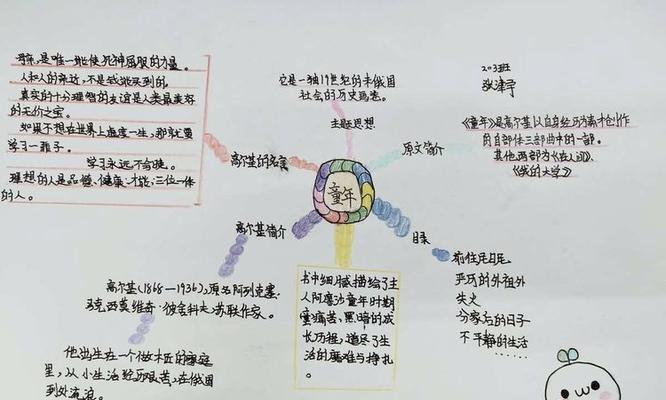 203班
童年
主题思想
它是一独19世纪的末俄国
社会的历史画卷。
原文简介
《童年》是高尔基以自身经历为才创作
的自部体三部曲中的一部。
其他两部为《在人间》、
《我的大学》
目录
前往尼日尼
严厉的外祖外
失火
分家后的日子
不平静的生活……
书中细腻描绘了主
人阿廖沙童年时期
童痛苦、黑暗的成
长历程,道尽了生
活的艰难与挣扎
。
高尔基简介
高尔基(1868—1936),原名阿列克塞·
马克西莫维奇·彼舍科夫,苏联作家。
他出生在一个做木匠的家庭
里,从小生活经历艰苦,在俄国
到处流浪。
高尔基的名言
书,是唯一能使死神屈服的力量。
人和人的亲近,不是钱能买到的。
真实的十分理智的友谊是人类最美好
的无价之宝。
如果不想在世界上虚度一生,那就要
学习一辈子。
学习永远不会晚。
理想的人是品德、健康、才能,三位一体
的人。